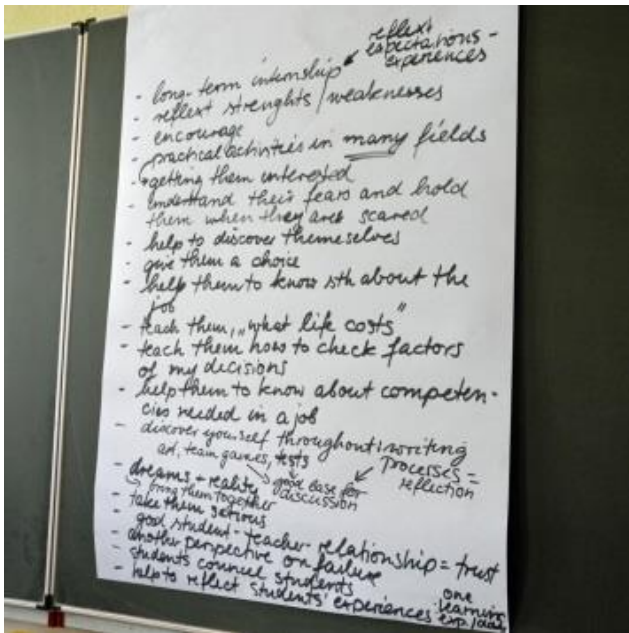 reflext
expectations -
experiences
- long-term internship
- reflext strenghts/weaknesses
- encourage
- practical activities in many fields
→ getting them interested
- understand their fears and hold
them when they are scared
- help to discover themeselves
- give them a choice
- help them to know sth about the
job
- teach them, „what life costs"
- teach them how to check factors
of my decisions
- help them to know about competen-
cies needed in a job
- discover yourself throughout: writing
art, team games, tests
processes =
reflection
→ good base for
discussion
- dreams + reality
→ bring them together
- take them serious
- good student-teacher-relationship = trust
- another perspective on failure
- students councel students
- help to reflect students' experiences
one
learning
exp./day